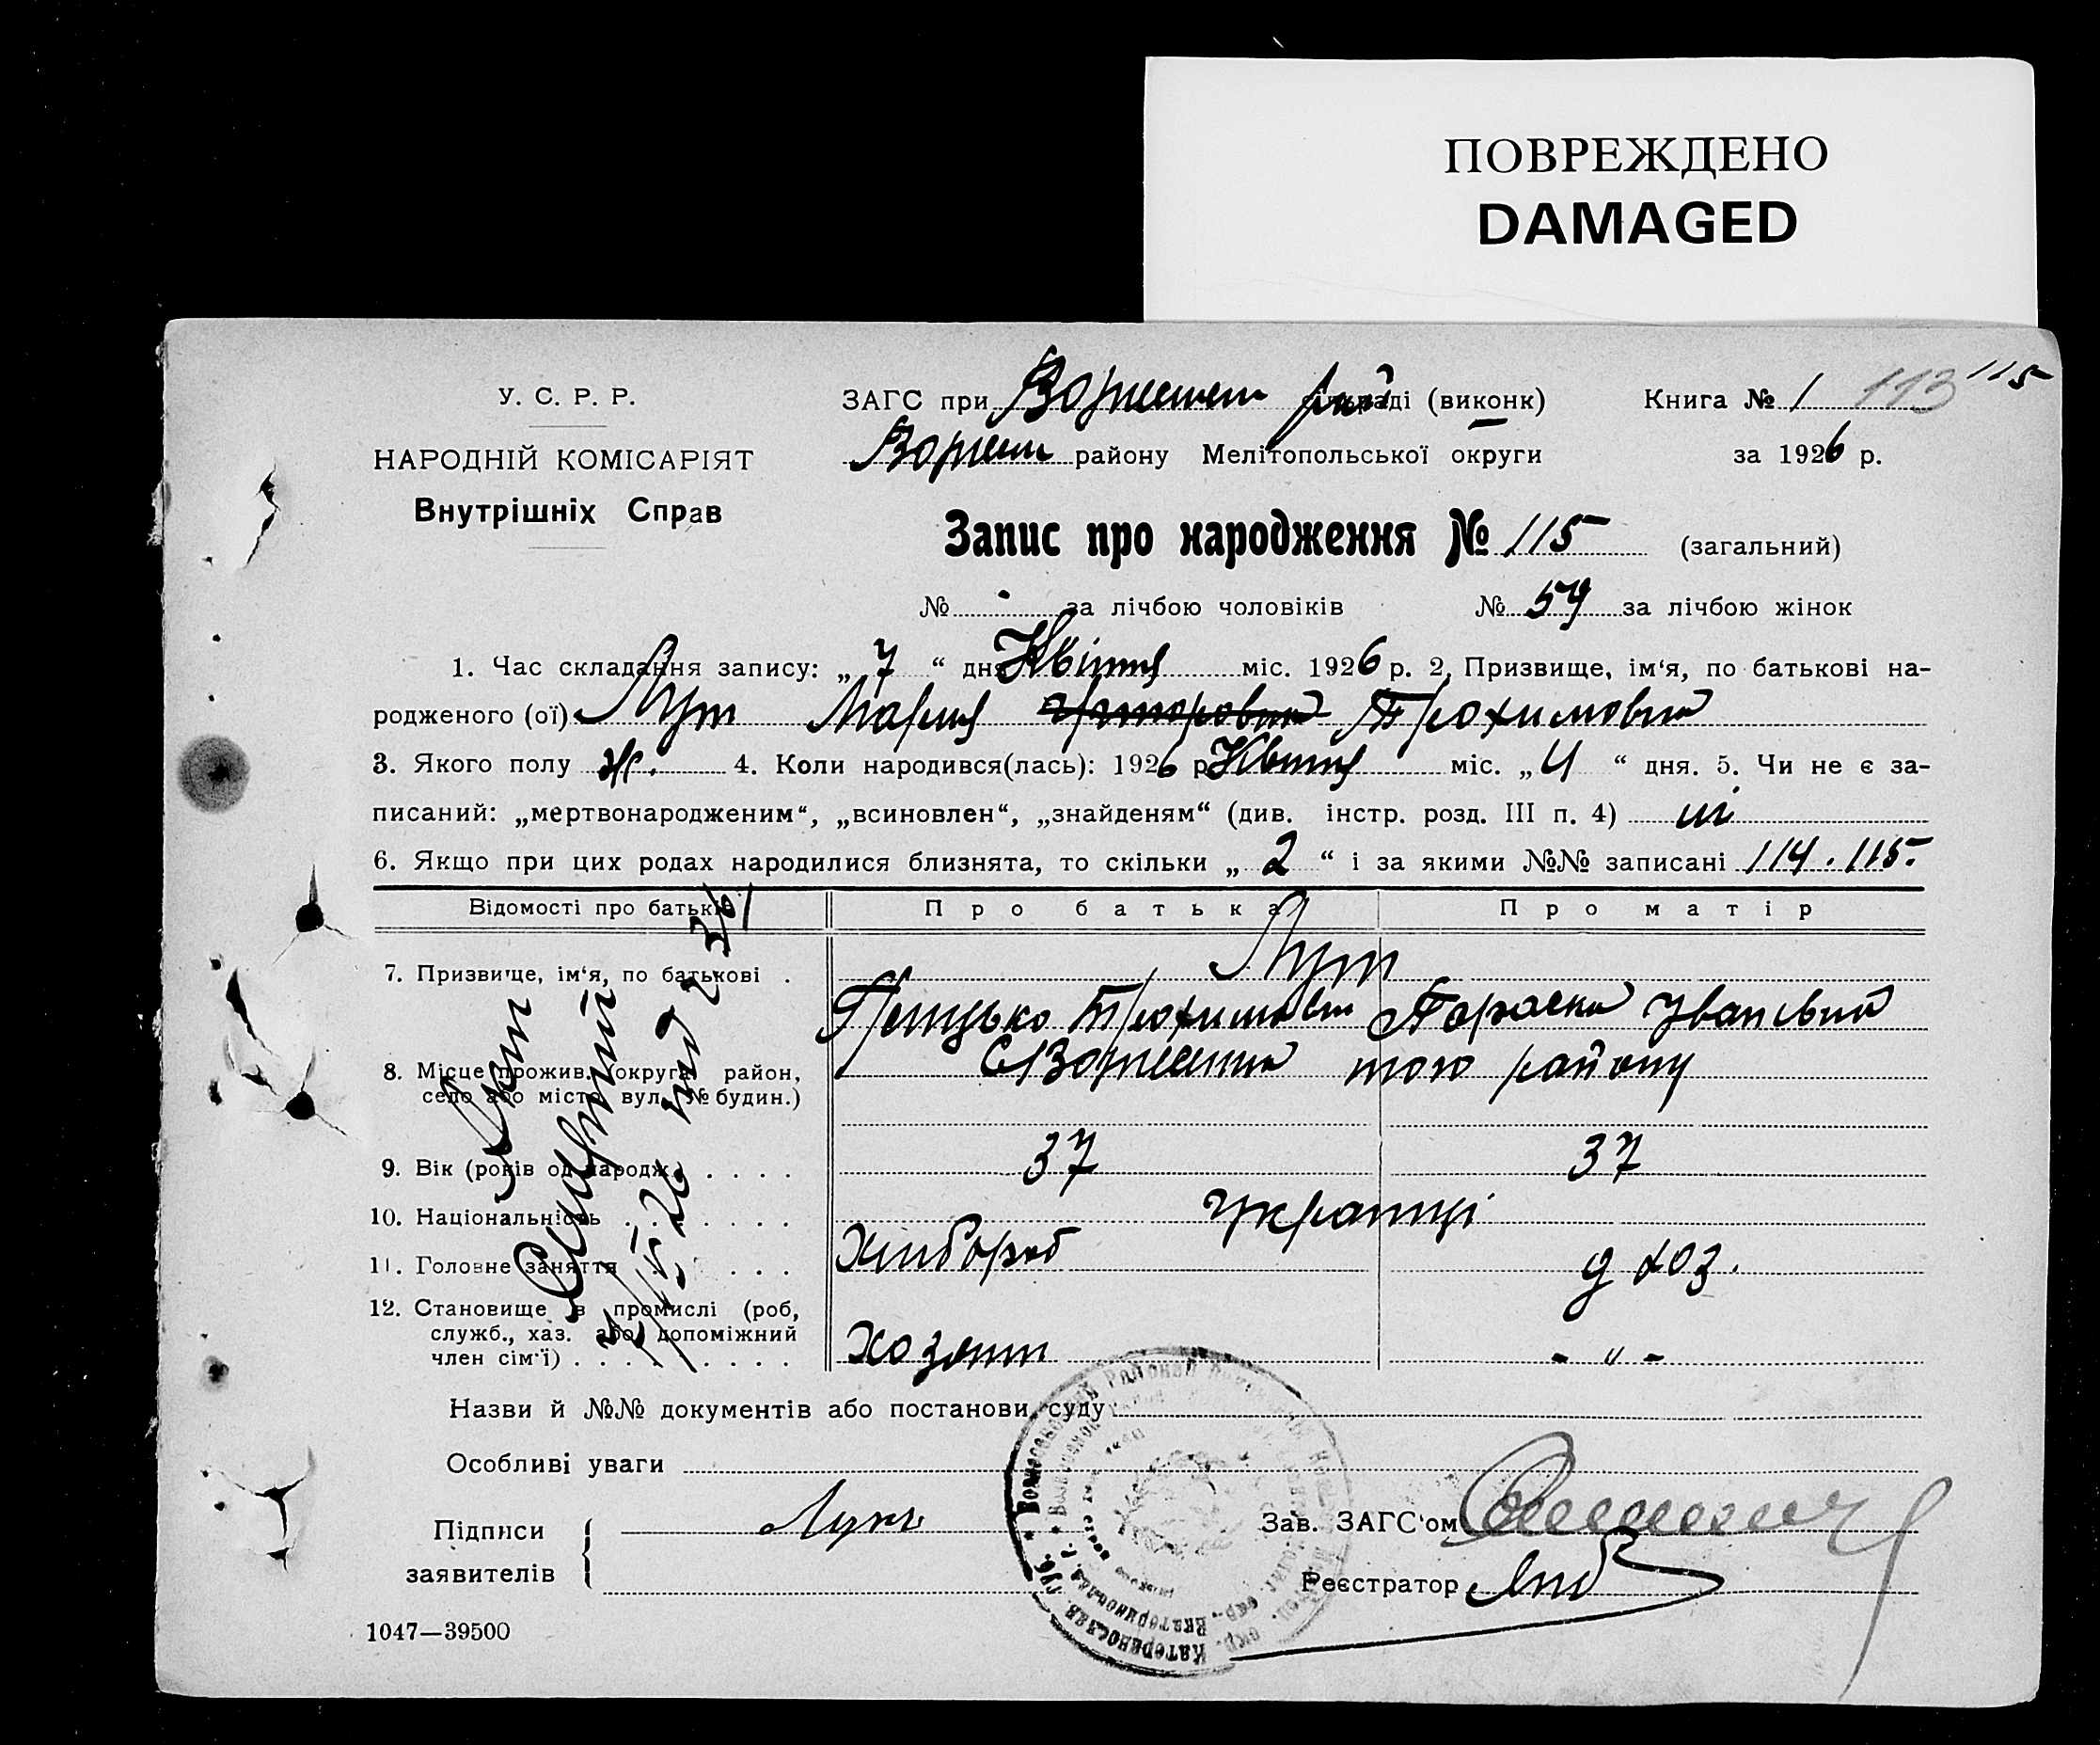 ПОВРЕЖДЕНО
DAMAGED
У. С. Р. Р.
НАРОДНІЙ КОМІСАРІЯТ
Внутрішніх Справ
ЗАГС при раді (виконк)
району Мелітопольської округи
Книга № 1 113 115
за 1926 р.
Запис про народження № 115 (загальний)
№ за лічбою чоловіків № 59 за лічбою жінок
1. Час складання запису: „ 7 “ дня Квітня міс. 1926 р. 2. Призвище, ім‘я, по батькові на-
родженого (ої) Лут Мария Трохимовна
3. Якого полу ж. 4. Коли народився(лась): 1926 р. Квітня міс. „ 4 “ дня. 5. Чи не є за-
писаний: „мертвонародженим“, „всиновлен“, „знайденям“ (див. інстр. розд. III п. 4) ні
6. Якщо при цих родах народилися близнята, то скільки „ 2 “ і за якими №№ записані 114. 115.
Відомості про батьків Про батька Про матір
7. Призвище, ім‘я, по батькові . Лут
Грицько Трохимович Параска Іванівна
8. Місце прожив. (округа, район, того району
село або місто, вул. № будин.)
9. Вік (років од народж. . . . . 37 37
10. Національність . . . . . . . Українці
11. Головне заняття . . . . Хлібороб д хоз.
12. Становище в промислі (роб,
служб., хаз. або допоміжний
член сім‘ї) . . . . . . . . . Хозяин - " -
Назви й №№ документів або постанови суду
Особливі уваги
Підписи
заявителів
Зав. ЗАГС‘ом
Реєстратор
1047—39500